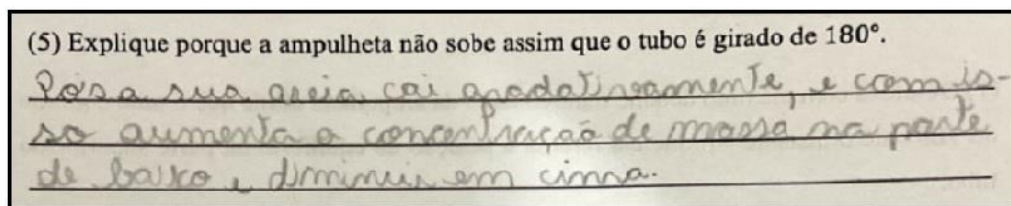 (5) Explique porque a ampulheta não sobe assim que o tubo é girado de 180°.
Pois a sua areia cai gradativamente, e com is-
so aumenta a concentração de massa na parte
de baixo e diminui em cima.